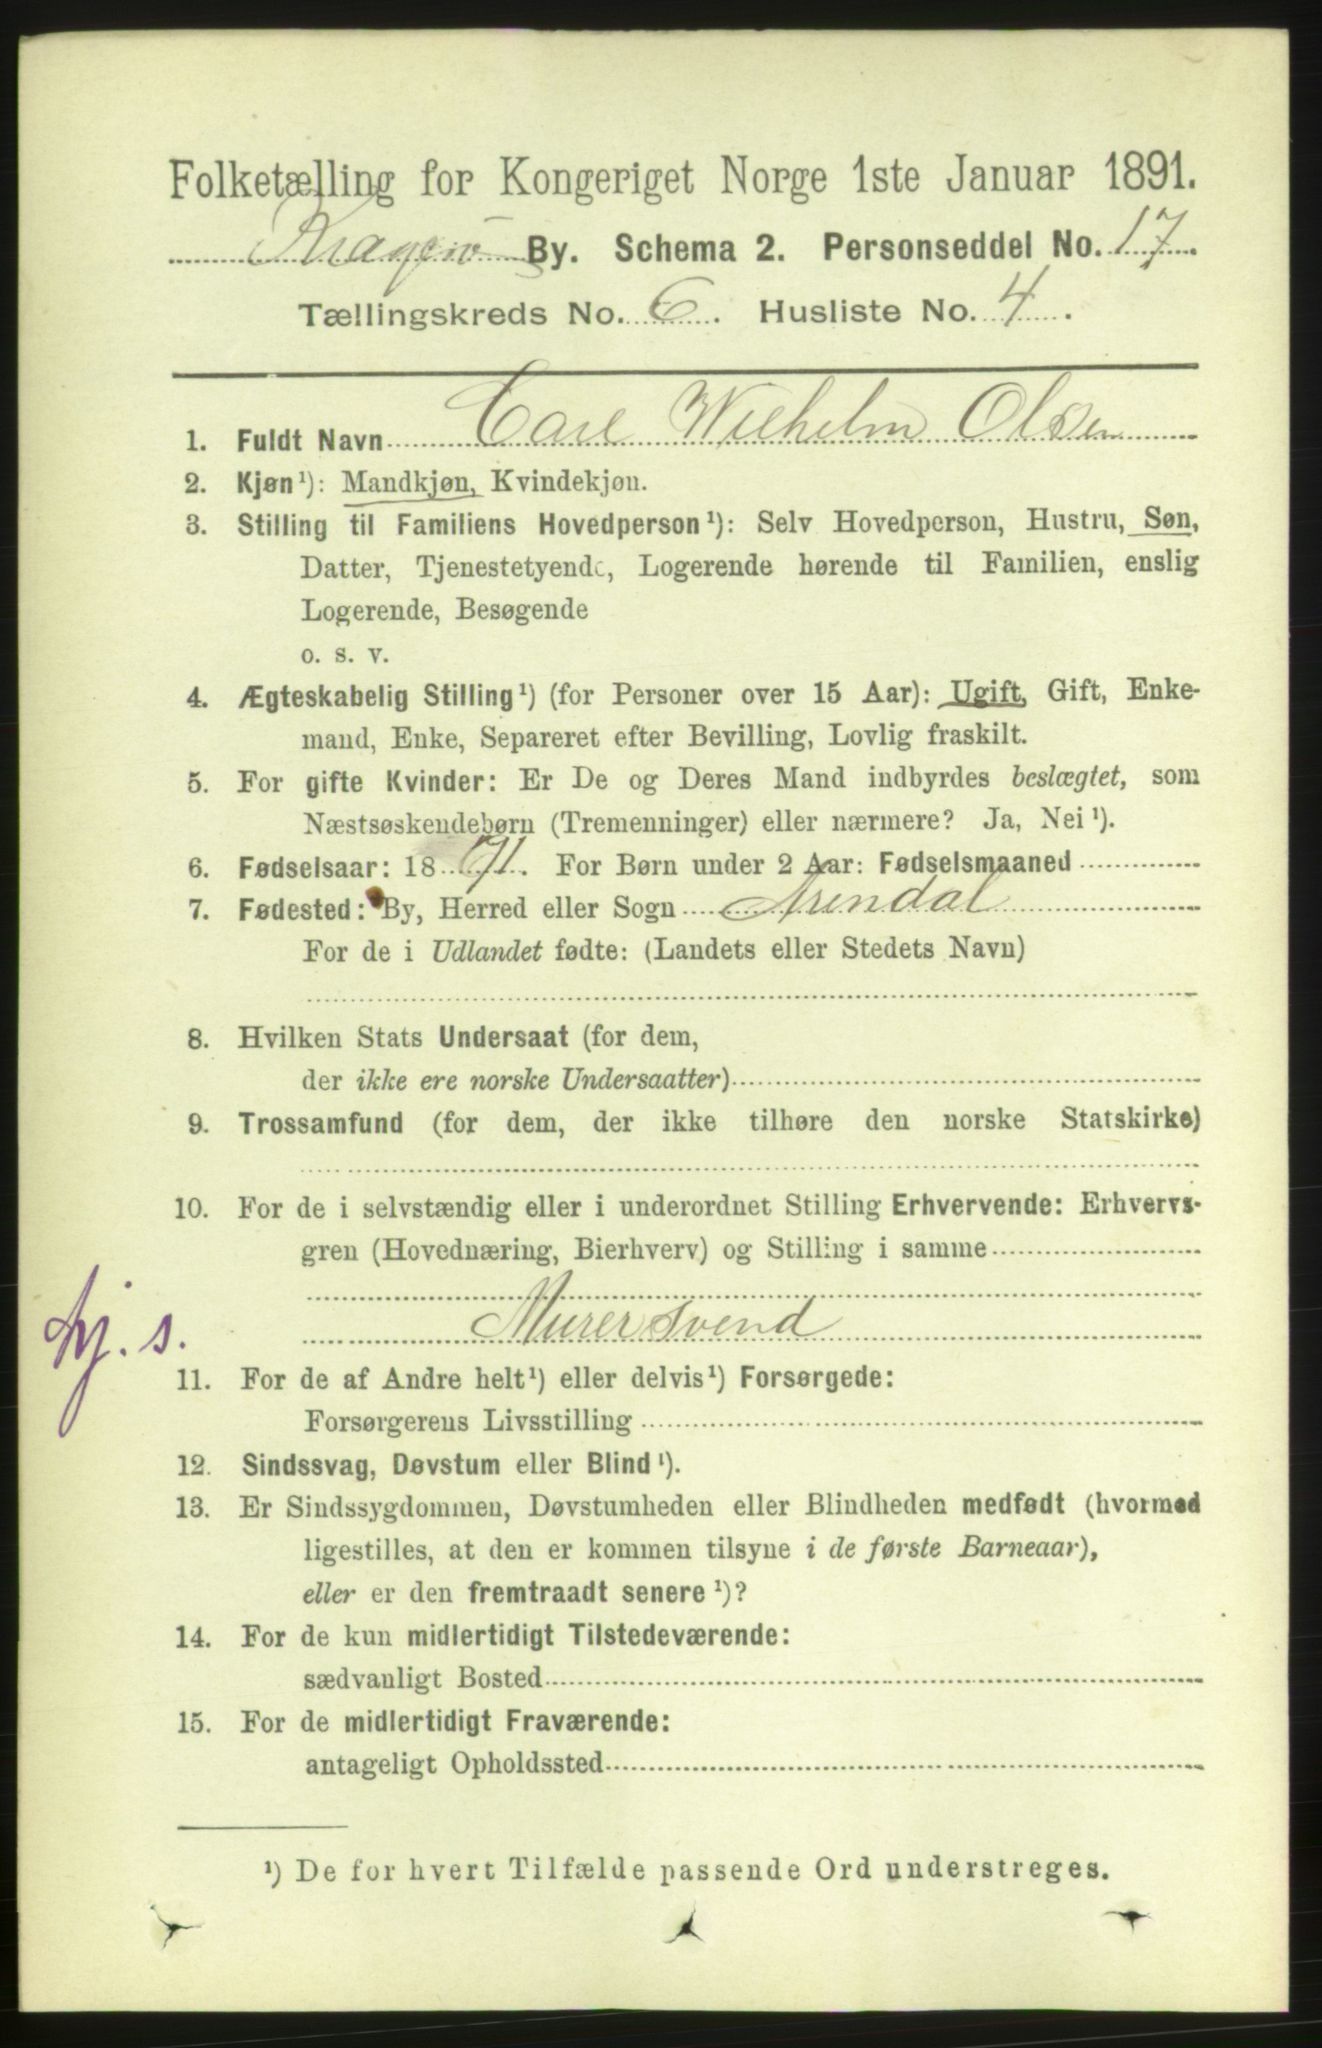 Folketælling for Kongeriget Norge 1ste Januar 1891.
Kragerø By. Schema 2. Personseddel No. 17.
Tællingskreds No. 6. Husliste No. 4.
1. Fuldt Navn Carl Wilhelm Olsen
2. Kjøn¹): Mandkjøn, Kvindekjøn.
3. Stilling til Familiens Hovedperson¹): Selv Hovedperson, Hustru, Søn,
Datter, Tjenestetyende, Logerende hørende til Familien, enslig
Logerende, Besøgende
o. s. v.
4. Ægteskabelig Stilling¹) (for Personer over 15 Aar): Ugift, Gift, Enke-
mand, Enke, Separeret efter Bevilling, Lovlig fraskilt.
5. For gifte Kvinder: Er De og Deres Mand indbyrdes beslægtet, som
Næstsøskendebørn (Tremenninger) eller nærmere? Ja, Nei¹).
6. Fødselsaar: 1871. For Børn under 2 Aar: Fødselsmaaned
7. Fødested: By, Herred eller Sogn Arendal
For de i Udlandet fødte: (Landets eller Stedets Navn)
8. Hvilken Stats Undersaat (for dem,
der ikke ere norske Undersaatter)
9. Trossamfund (for dem, der ikke tilhøre den norske Statskirke)
10. For de i selvstændig eller i underordnet Stilling Erhvervende: Erhvervs-
gren (Hovednæring, Bierhverv) og Stilling i samme
Murersvend
hj. s.
11. For de af Andre helt¹) eller delvis¹) Forsørgede:
Forsørgerens Livsstilling
12. Sindssvag, Døvstum eller Blind¹).
13. Er Sindssygdommen, Døvstumheden eller Blindheden medfødt (hvormed
ligestilles, at den er kommen tilsyne i de første Barneaar),
eller er den fremtraadt senere¹)?
14. For de kun midlertidigt Tilstedeværende:
sædvanligt Bosted
15. For de midlertidigt Fraværende:
antageligt Opholdssted
¹) De for hvert Tilfælde passende Ord understreges.